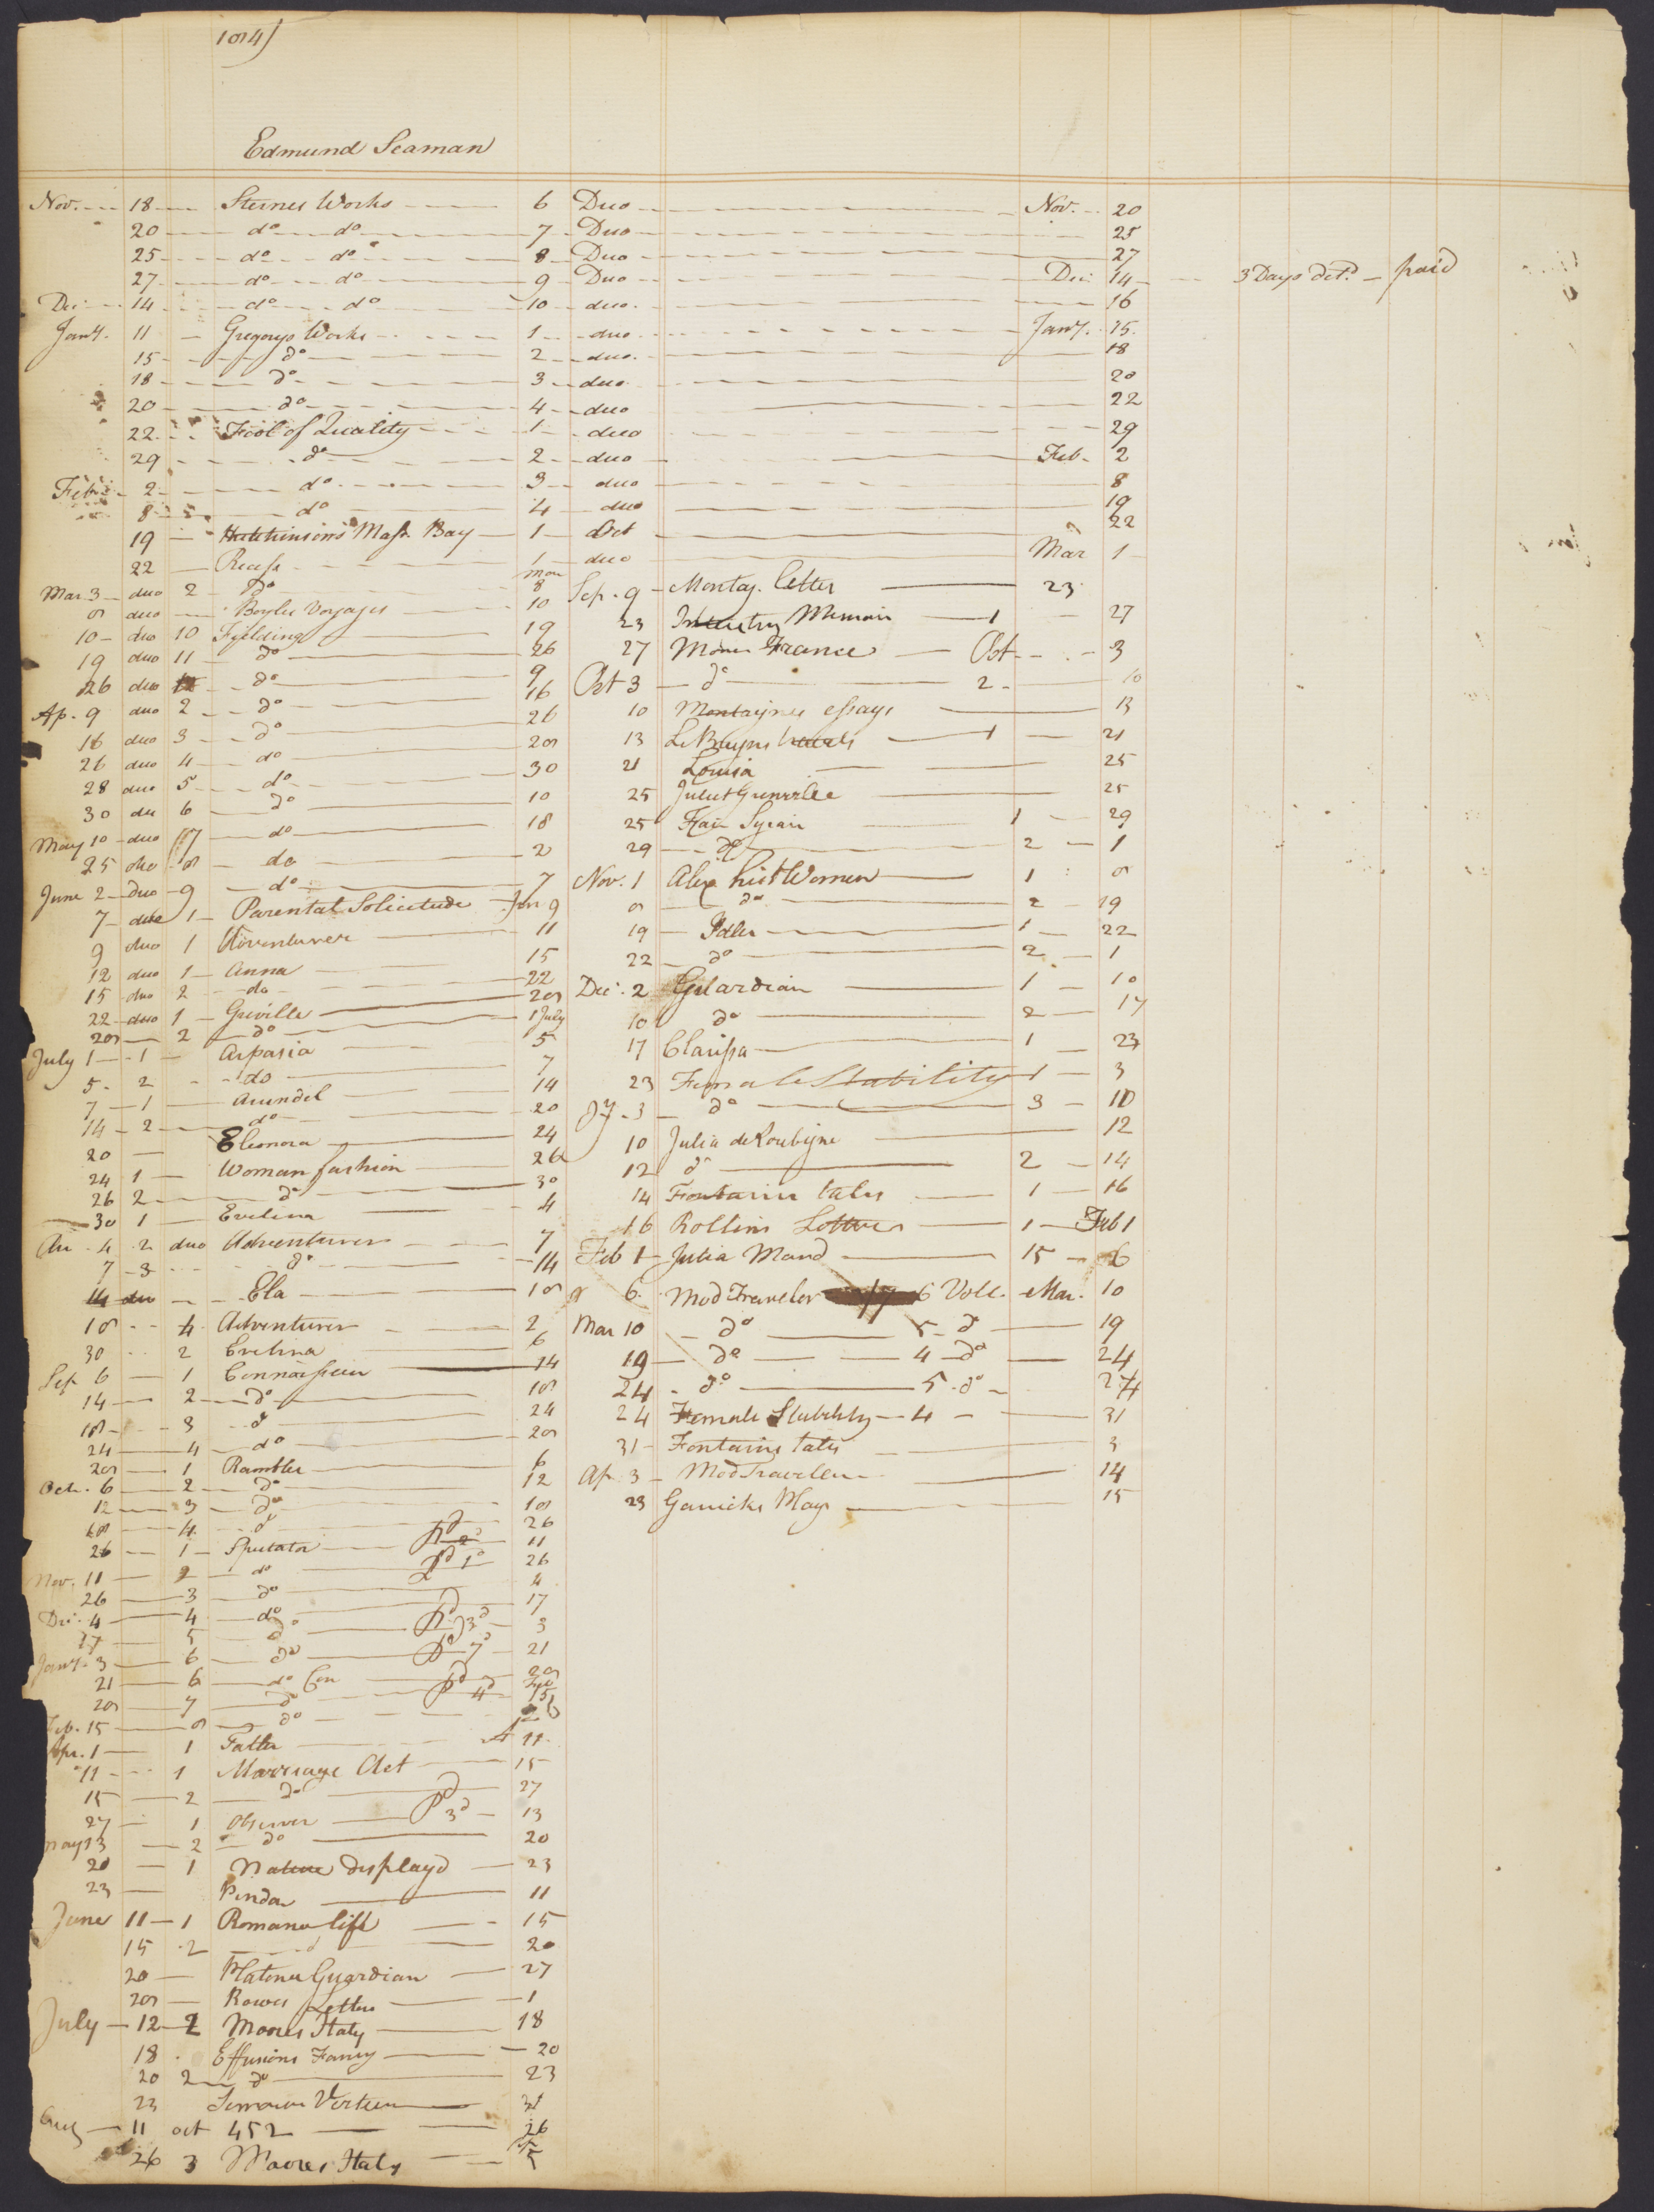 184)
Edmund Seaman
Nov. 18 Sternes Works 6 Duo Nov. 20
20 do do 7 Duo 25
25 do do 8 Duo 27
27 do do 9 Duo Dec 14 3 Days det.d paid
Dec 14 do do 10 duo 16
Jany. 11 Gregorys Works 1 duo Jany. 15
15 do 2 duo 18
18 do 3 duo 20
20 do 4 duo 22
22 Fool of Quality 1 duo 29
29 do 2 duo Feb. 2
Feb. 2 do 3 duo 8
8 do 4 duo 19
19 Hutchinsons Mass. Bay 1 Oct 22
22 Recess 1 duo Mar 1
Mar 3 duo 2 do Mar 8
8 duo Boyles Voyages 10
10 duo 10 Fielding 19
19 duo 11 do 26
26 duo do 9
Ap. 9 duo 2 do 16
16 duo 3 do 26
26 duo 4 do 28
28 duo 5 do 30
30 du 6 do 10
May 10 duo 7 do 18
25 duo 8 do 2
June 2 Duo 9 do 7
7 duo 1 Parental Solicitude Jun 9
9 duo 1 Adventurer 11
12 duo 1 Anna 15
15 duo 2 do 22
22 duo 1 Greville 28
28 2 do 1 July
July 1 1 Aspasia 5
5 2 do 7
7 1 Arundel 14
14 2 do 20
20 Eleonora 24
24 1 Woman fashion 26
26 2 do 30
30 1 Evelina 4
Au. 4 2 duo Adventurer 7
7 3 do 14
14 du Ela 18
18 4 Adventurer 2
30 2 Evelina 6
Sep 6 1 Connoisseur 14
14 2 do 18
18 3 do 24
24 4 do 28
28 1 Rambler 6
Oct. 6 2 do 12
12 3 do 18
18 4 do 26
26 1 Spectator pd 2d 11
Nov. 11 2 do pd 1d 26
26 3 do 4
Dec. 4 4 do 17
17 5 do pd 3d 3
Jany 3 6 do pd 7d 21
21 6 do Con 28
28 7 do pd 4d Feb 15
Feb. 15 8 do
Apr. 1 1 Tatler 11
11 1 Marriage Act 15
15 2 do 27
27 1 Observer Pd 3d 13
May 13 2 do 20
20 1 Nature displayd 23
23 Pindar 11
June 11 1 Romance life 15
15 2 20
20 Platonic Guardian 27
28 Rowes Letters 1
July 12 2 Moores Italy 18
18 Effusions Fancy 20
20 2 do 23
23 31
Aug 11 oct 452 26
26 3 Moores Italy 5
Sep. 9 Montag. letter 23
23 Memoir 1 27
27 France Oct 3
Oct 3 do 2 10
10 Montaignes essays 13
13 Le Bruyns travels 1 21
21 Louisa 25
25 Juliet Grenville 25
25 Fair Syrian 1 29
29 do 2 1
Nov. 1 Alex hist Women 1 8
8 do 2 19
19 Idler 1 22
22 do 2 1
Dec. 2 Guardian 1 10
10 do 2 17
17 Clarissa 1 23
23 Female Stability 1 3
Jy 3 do 3 10
10 Julia de Roubigne 12
12 do 2 14
14 Fontaine tales 1 16
16 Rollins Letters 1 Feb 1
Feb 1 Julia Mand 15 6
6 Mod Traveler 6 Voll. Mar. 10
Mar 10 do 5 do 19
19 do 4 do 24
24 do 5 do 24
24 Female Stability 4 31
31 Fontains tales 3
Ap. 3 Mod Traveler 14
23 Garricks Plays 15